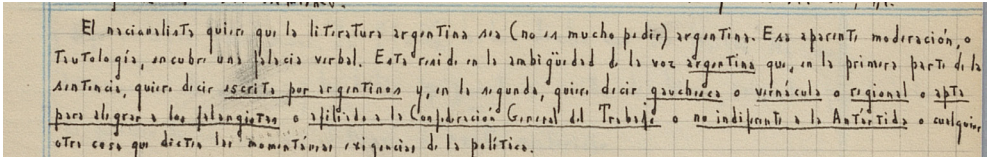 El nacionalista quiere que la literatura argentina sea (no es mucho pedir) argentina. Esa aparente moderación, o
tautología, encubre una falacia verbal. Esta reside en la ambigüedad de la voz argentina que, en la primera parte de la
sentencia, quiere decir escrita por argentinos y, en la segunda, quiere decir gauchesca o vernácula o regional o apta
para alegrar a los falangistas o afiliada a la Confederación General del Trabajo o no indiferente a la Antártida o cualquier
otra cosa que dicten las momentáneas exigencias de la política.